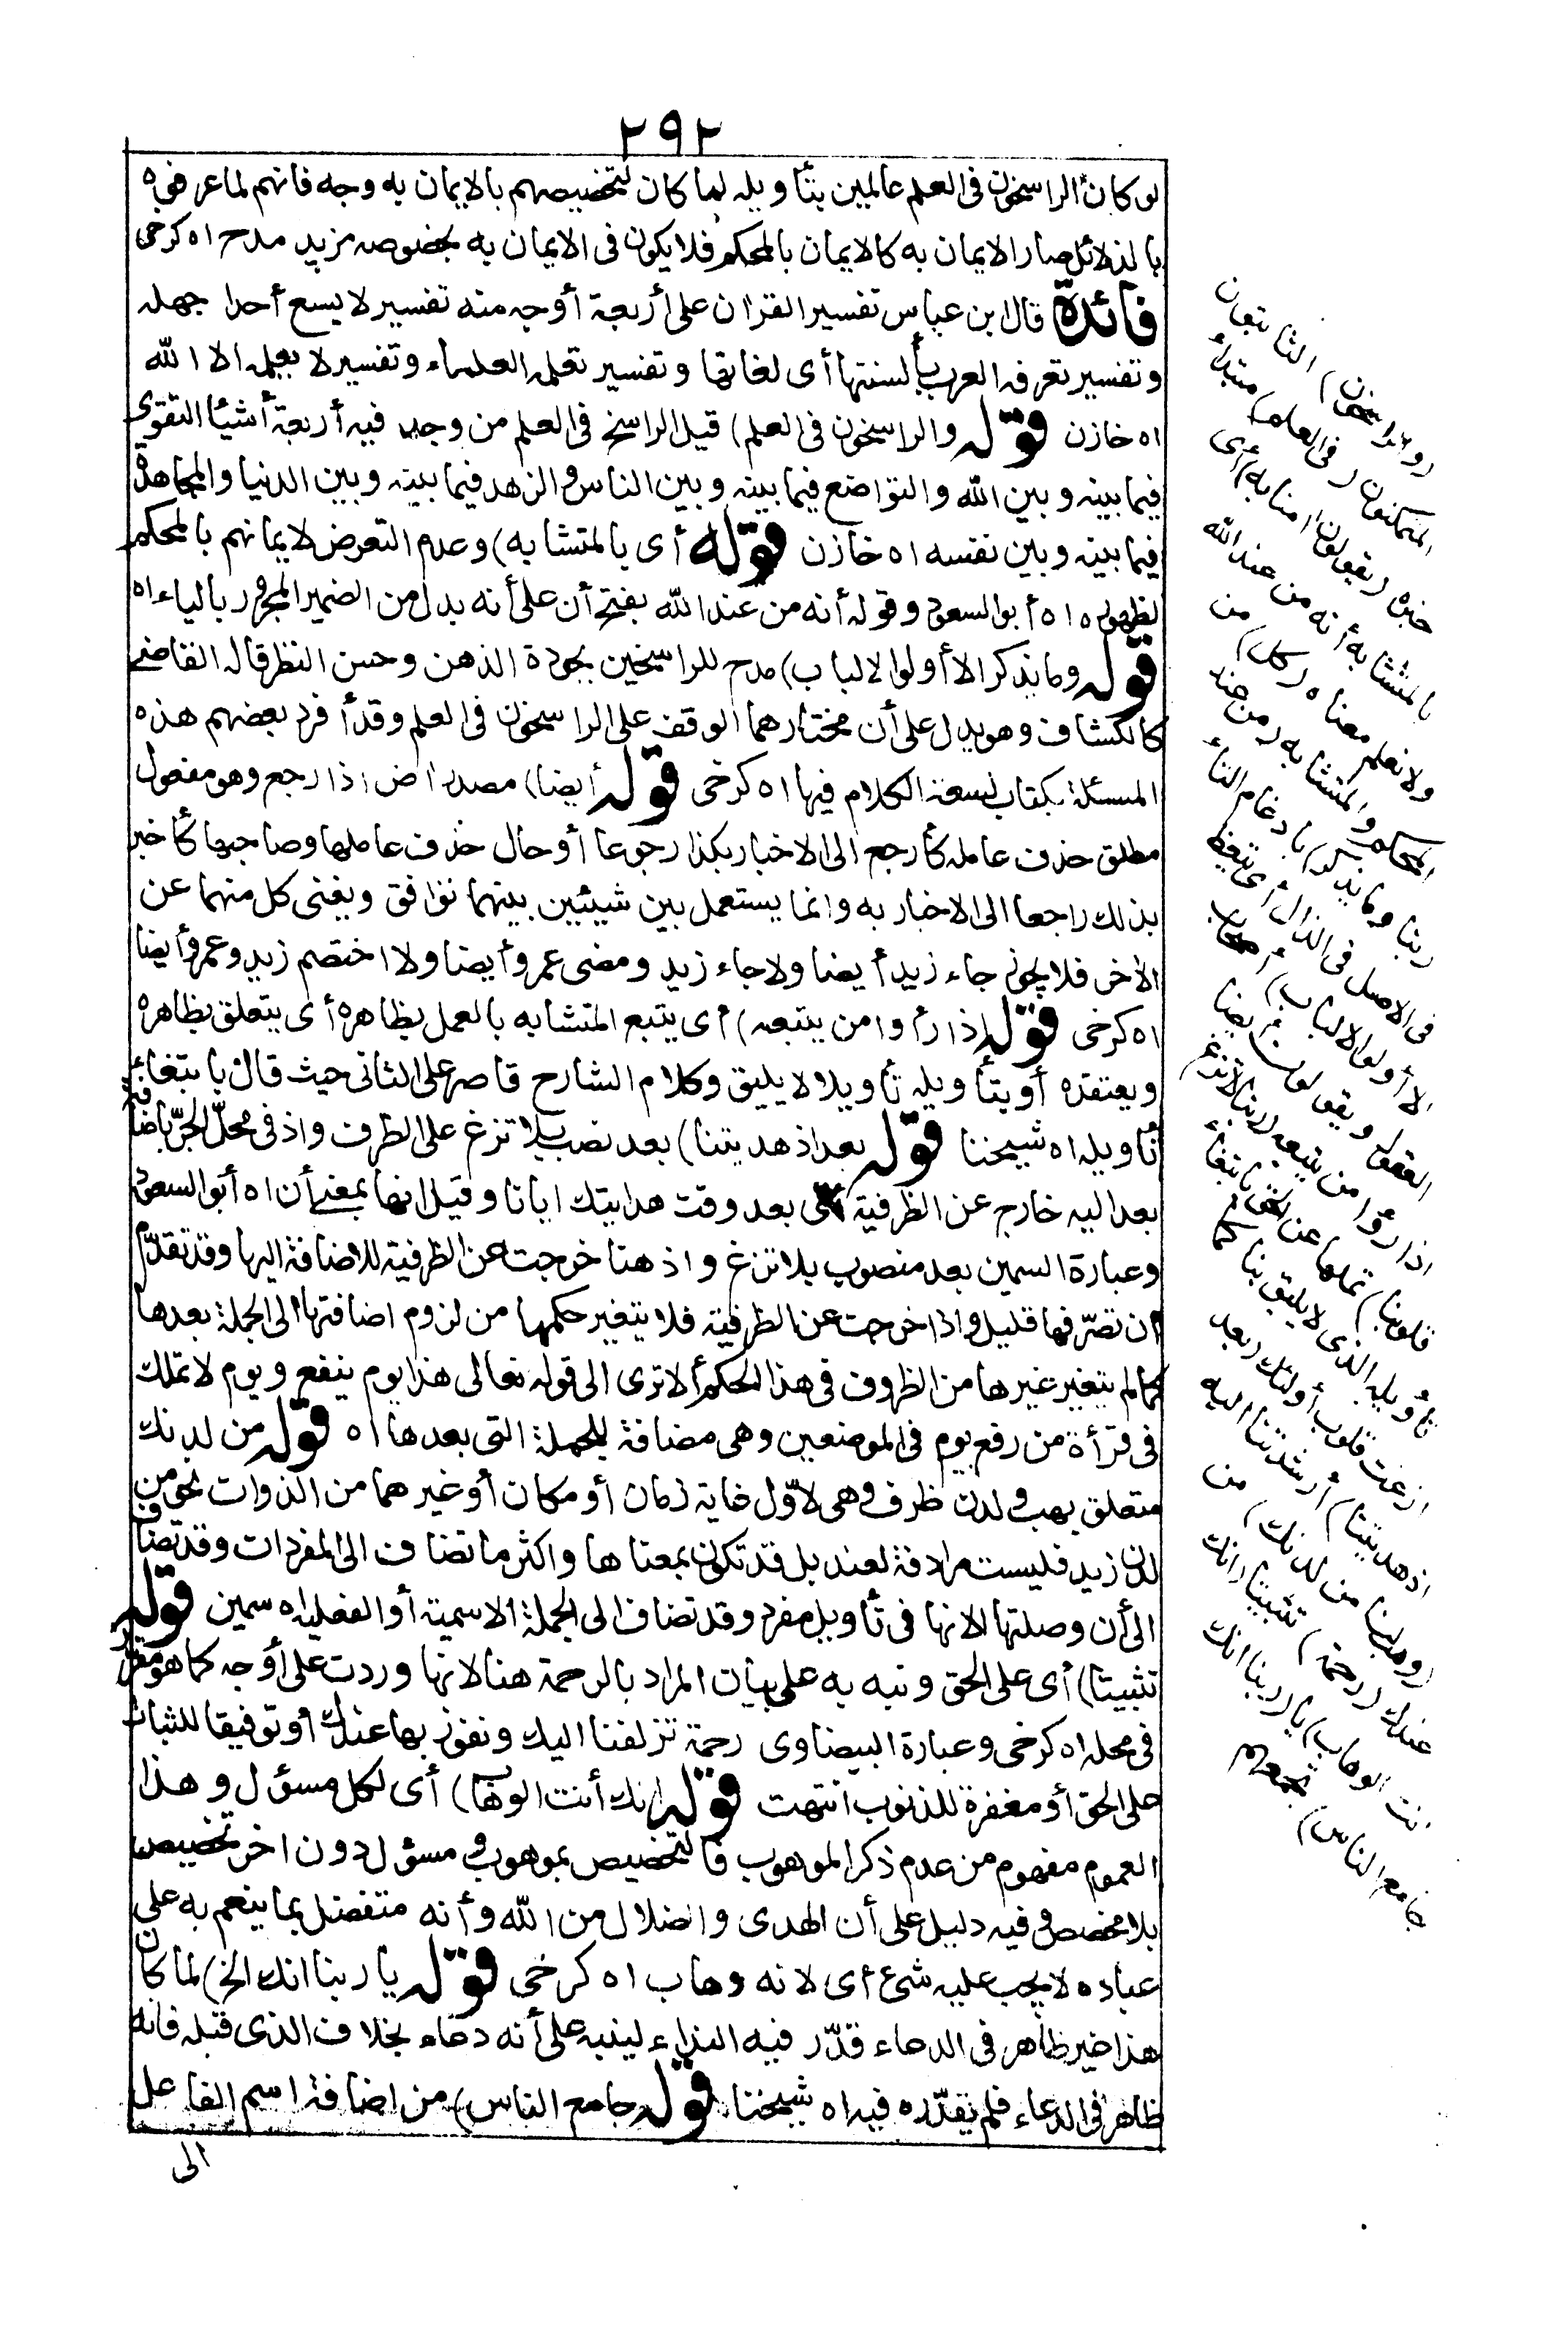 ٢٩٢
لو كان الراسخون فى العلم عالمين بتأويله لما كان لتخصيصهم بالايمان به وجه فانهم لما عرفوه
بالدلائل صار الايمان به كالايمان بالمحكم فلا يكون فى الايمان به بخصوصه مزيد مدح اه كرخى
فائدة قال ابن عباس تفسير القران على أربعة أوجه منه تفسير لا يسع أحدا جهله
وتفسير تعرفه العرب بألسنتها أى لغاتها وتفسير تعلمه العلماء وتفسير لا يعلمه الا الله
اه خازن قوله والراسخون فى العلم) قيل الراسخ فى العلم من وجد فيه أربعة أشيئا التقوى
فيما بينه وبين الله والتواضع فيما بينه وبين الناس والزهد فيما بينه وبين الدنيا والمجاهدة
فيما بينه وبين نفسه اه خازن قوله أى بالمتشابه) وعدم التعرض لايمانهم بالمحكم
لظهوره اه أبو السعود وقوله أنه من عند الله بفتح أن على أنه بدل من الضمير المجرور بالباء اه
قوله وما يذكر الا أولوا الالباب) مدح للراسخين بجودة الذهن وحسن النظر قاله القاضى
كالكشاف وهو يدل على أن مختارهما الوقف على الراسخون فى العلم وقد أفرد بعضهم هذه
المسئلة بكتاب لسعة الكلام فيها اه كرخى قوله أيضا) مصدر اض اذا رجع وهو مفعول
مطلق حذف عامله كأرجع الى الاخبار بكذا رجوعا أو حال حذف عاملها وصاحبها كأخبر
بذلك راجعا الى الاخبار به وانما يستعمل بين شيئين بينهما توافق ويغنى كل منهما عن
الاخر فلا يجوز جاء زيد أيضا ولا جاء زيد ومضى عمرو أيضا ولا اختصم زيد وعمرو أيضا
اه كرخى قوله اذا رأوا من يتبعه) أى يتبع المتشابه بالعمل بظاهره أى يتعلق بظاهره
ويعتقده أو يتأويله تأويلا لا يليق وكلام الشارح قاصر على الثانى حيث قال بابتغاء
تأويله اه شيخنا قوله بعد اذ هديتنا) بعد نصب بلا تزغ على الظرف واذ فى محل الجر باضافة
بعد اليه خارج عن الظرفية أى بعد وقت هدايتك ايانا وقيل انها بمعنى أن اه أبو السعود
وعبارة السمين بعد منصوب بلا تزغ واذ هنا خرجت عن الظرفية للاضافة اليها وقد تقدّم
أن تصرّفها قليل واذا خرجت عن الظرفية فلا يتغير حكمها من لزوم اضافتها الى الجملة بعدها
كما لم يتغير غيرها من الظروف فى هذا الحكم ألا ترى الى قوله تعالى هذا يوم ينفع ويوم لا تملك
فى قرأة من رفع يوم فى الموضعين وهى مضافة للجملة التى بعدها اه قوله من لدنك
متعلق بهب ولدن ظرف وهى لاوّل غاية زمان أو مكان أو غيرهما من الذوات نحو من
لدن زيد فليست مرادفة لعند بل قد تكون بمعناها واكثر ما تضاف الى المفردات وقد تضاف
الى أن وصلتها لانها فى تأويل مفرد وقد تضاف الى الجملة الاسمية أو الفعلية اه سمين قوله
تثبيتا) أى على الحق ونبه به على بيان المراد بالرحمة هنا لانها وردت على أوجه كما هو مقرر
فى محله اه كرخى وعبارة البيضاوى رحمة تزلفنا اليك ونفوز بها عندك أو توفيقا للثبات
على الحق أو مغفرة للذنوب انتهت قوله انك أنت الوهاب) أى لكل مسؤل وهذا
العموم مفهوم من عدم ذكر الموهوب فالتخصيص بموهوب ومسؤل دون اخر تخصيص
بلا مخصص وفيه دليل على أن الهدى والضلال من الله وأنه متفضل بما ينعم به على
عباده لا يجب عليه شئ أى لانه وهاب اه كرخى قوله يا ربنا انك الخ) لما كان
هذا غير ظاهر فى الدعاء قدّر فيه النداء لينبه على أنه دعاء بخلاف الذى قبله فانه
ظاهر فى الدعاء فلم يقدّره فيه اه شيخنا قوله جامع الناس) من اضافة اسم الفاعل
الى
(والراسخون) الثابتون
المتمكنون (فى العلم) مبتداء
خبره (يقولون امنا به) أى
بالمتشابه أنه من عند الله
ولا نعلم معناه (كل) من
المحكم والمتشابه (من عند
ربنا وما يذكر) بادغام التاء
فى الاصل فى الذال أى يتعظ
الا أولوا الالباب) أصحاب
العقول ويقولون أيضا
اذا رأوا من يتبعه (ربنا لا تزغ
قلوبنا) تملها عن الحق بابتغاء
تأويله الذى لا يليق بنا كما
ازغت قلوب أولئك (بعد
اذ هديتنا) أرشدتنا اليه
(وهب لنا من لدنك) من
عندك (رحمة) تثبيتا (انك
أنت الوهاب) يا (ربنا انك
جامع الناس) تجمعهم